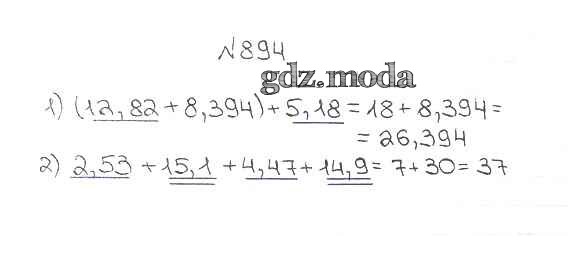 №894
gdz.moda
1) (12,82 + 8,394) + 5,18 = 18 + 8,394 =
= 26,394
2) 2,53 + 15,1 + 4,47 + 14,9 = 7 + 30 = 37